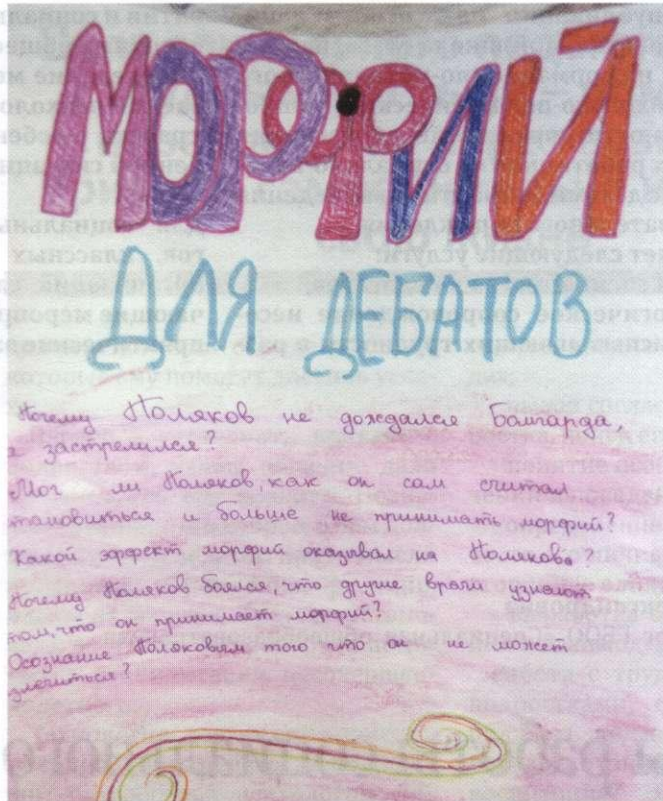 МОРФИЙ
ДЛЯ ДЕБАТОВ
Почему Поляков не дождался Бомгарда,
застрелился?
Мог ли Поляков, как он сам считал
тановиться и больше не принимать морфий?
Какой эффект морфий оказывал на Полякова?
Почему Поляков боялся, что другие врачи узнают
том, что он принимает морфий?
Осознание Поляковым того что он не может
злечиться?